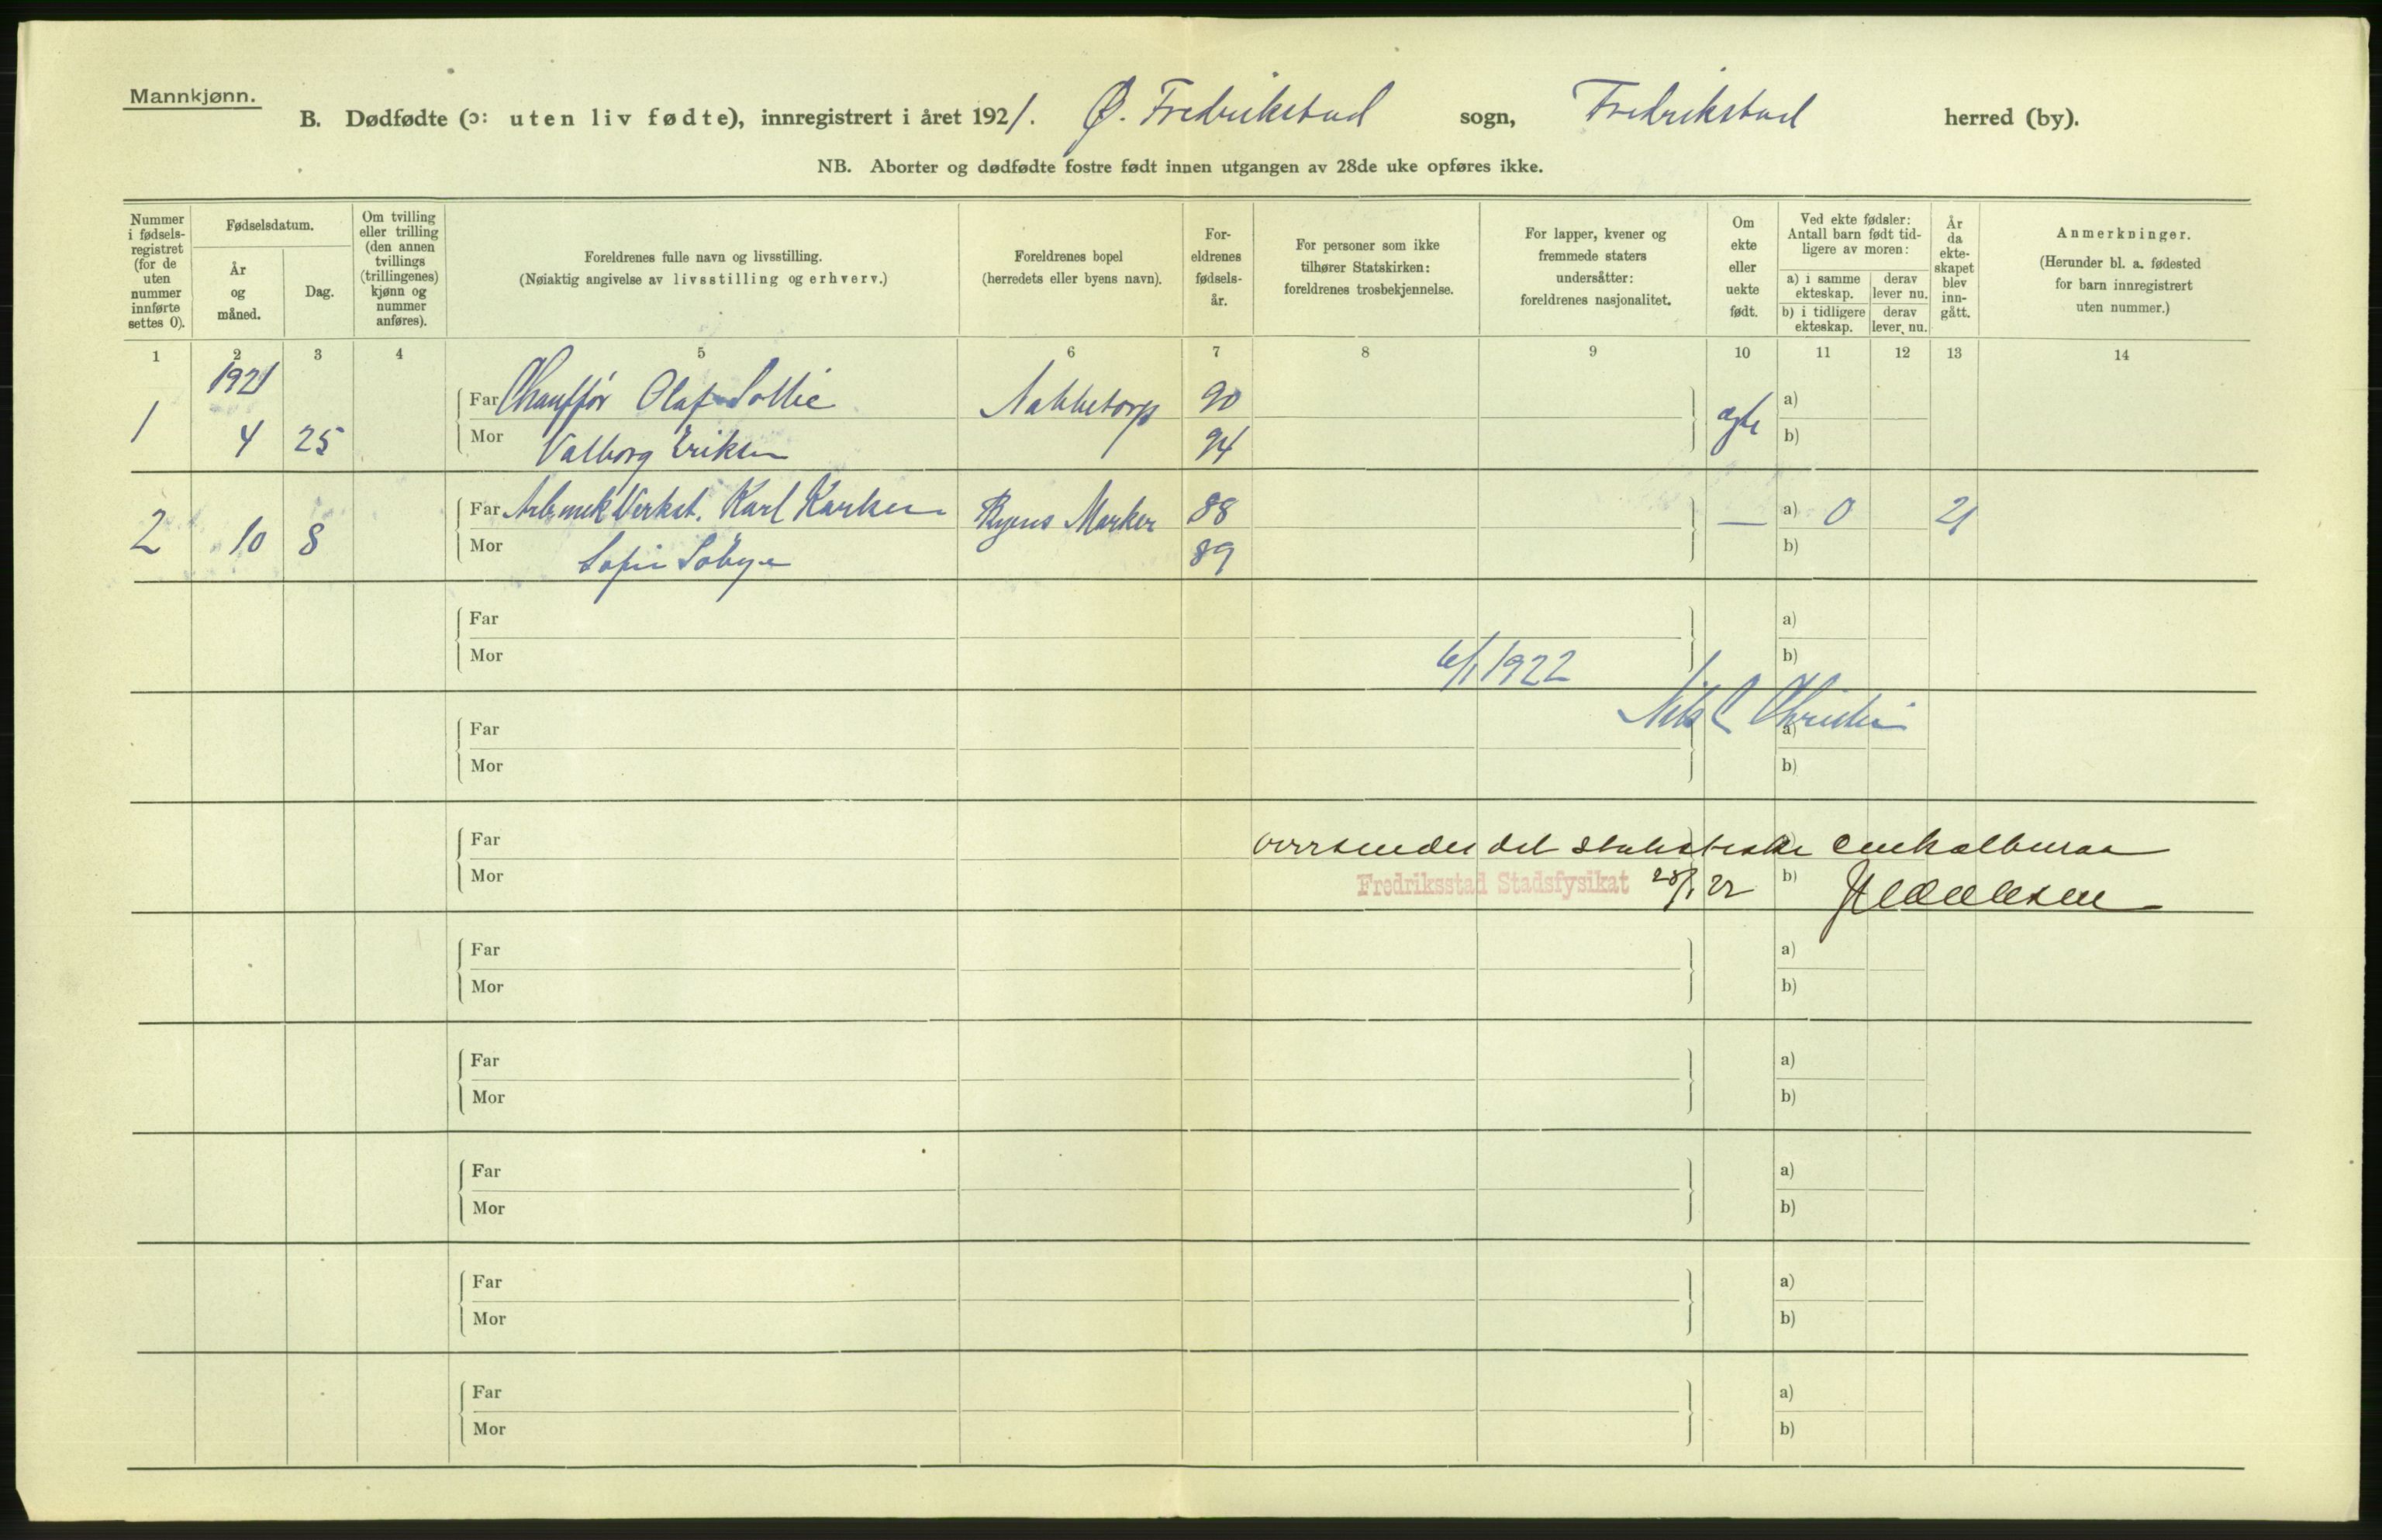 Mannkjønn.
B. Dødfødte (ɔ: uten liv fødte), innregistrert i året 1921. Ø. Fredrikstad sogn, Fredrikstad herred (by).
NB. Aborter og dødfødte fostre født innen utgangen av 28de uke opføres ikke.
Nummer i fødsels-registret (for de uten nummer innførte settes 0).
Fødselsdatum.
År og måned.
Dag.
Om tvilling eller trilling (den annen tvillings (trillingenes) kjønn og nummer anføres).
Foreldrenes fulle navn og livsstilling.
(Nøiaktig angivelse av livsstilling og erhverv.)
Foreldrenes bopel
(herredets eller byens navn).
For-eldrenes fødsels-år.
For personer som ikke tilhører Statskirken: foreldrenes trosbekjennelse.
For lapper, kvener og fremmede staters undersåtter: foreldrenes nasjonalitet.
Om ekte eller uekte født.
Ved ekte fødsler: Antall barn født tid-ligere av moren:
a) i samme ekteskap.
derav lever nu.
b) i tidligere ekteskap.
derav lever nu.
År da ekte-skapet blev inn-gått.
Anmerkninger.
(Herunder bl. a. fødested for barn innregistrert uten nummer.)
1 2 3 4 5 6 7 8 9 10 11 12 13 14
1921
Far Chauffør Olaf Sollie Nabbetorp 90 a)
1 4 25 Mor Valborg Eriksen 94 ægte b)
Far Arb. mek Verkst. Karl Karlsen Ryens Marker 88 — a) 0 21
2 10 8 Mor Sofie 89 b)
Far a)
Mor b)
6/1 1922
Far a)
Mor b)
Far oversendes det statistiske centralbureau
Mor Fredriksstad Stadsfysikat 28/1 22 b)
Far a)
Mor b)
Far a)
Mor b)
Far a)
Mor b)
Far a)
Mor b)
Far a)
Mor b)